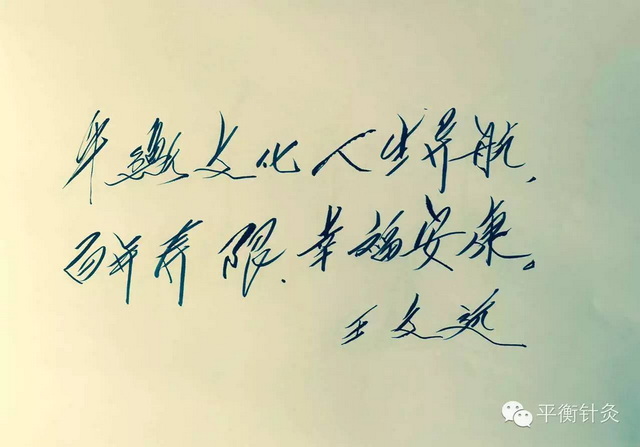 平衡文化人生导航,
百年寿限,幸福安康。
王文远
平衡针灸